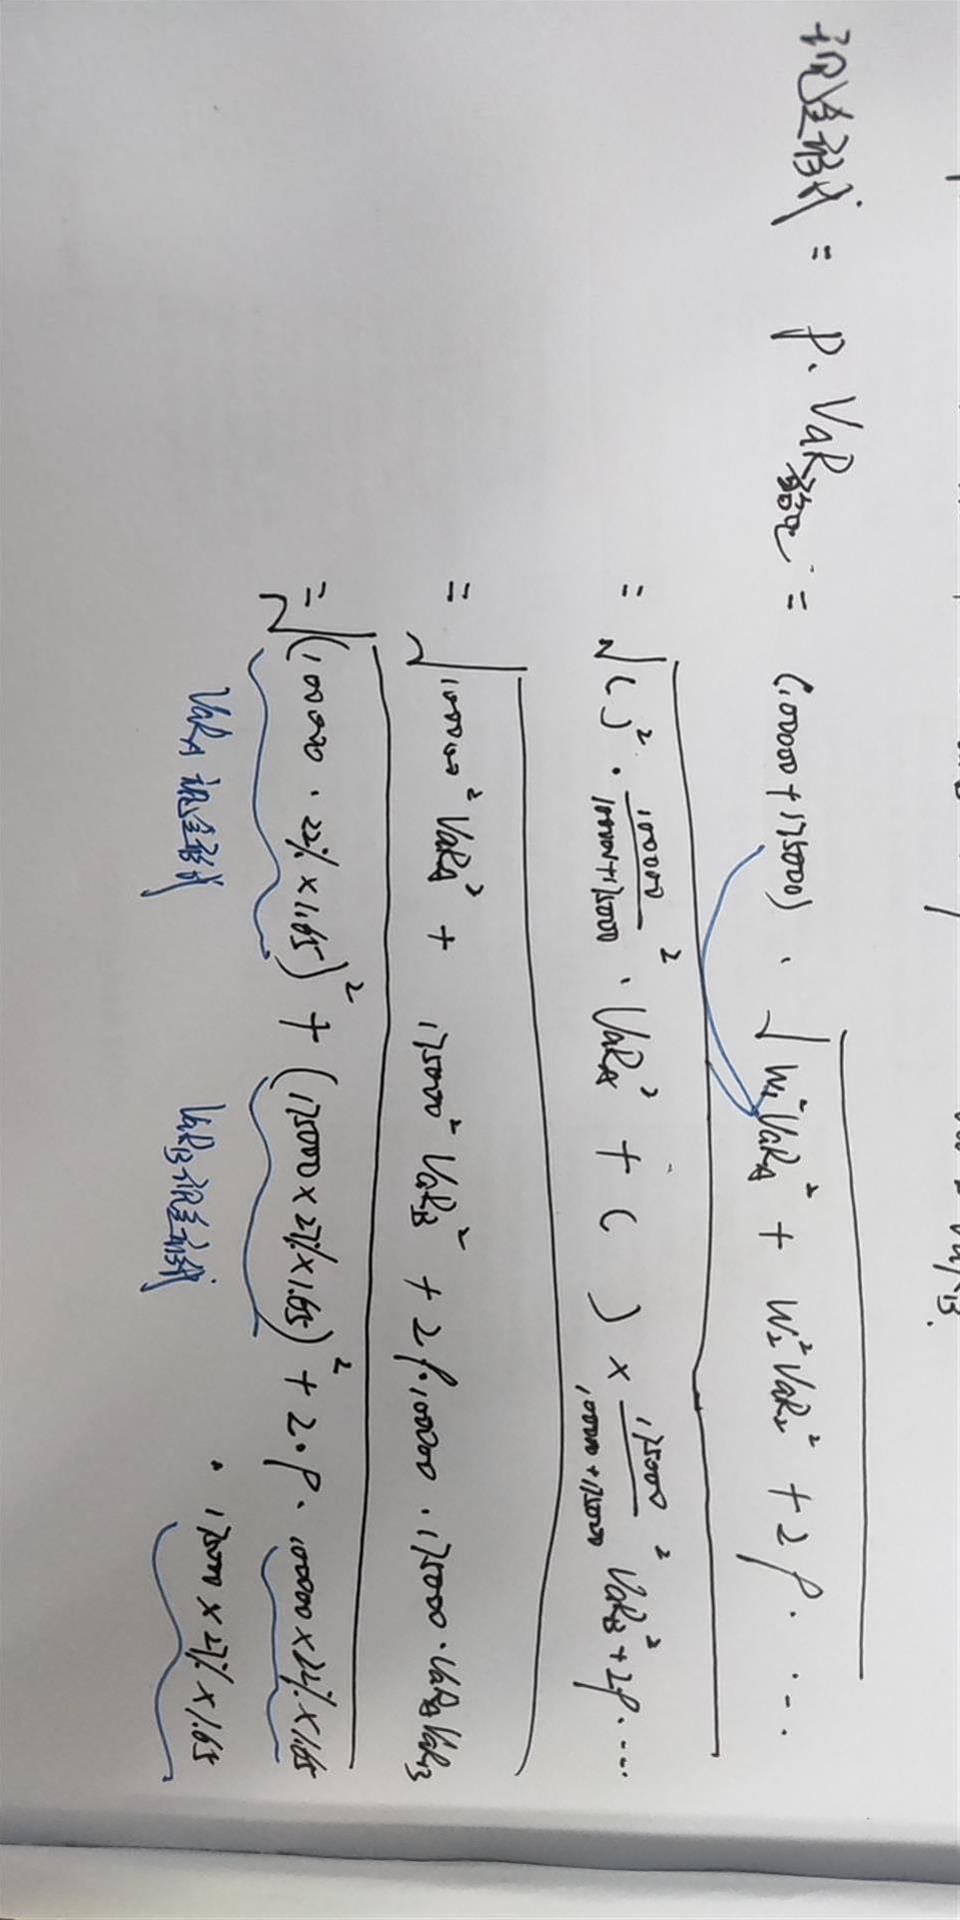 现金形式 = P. VaR 新定 = (100000+175000) · √ W₁²VaR_A² + W₂²VaR₂² + 2ρ. ...
= √ ( )² · 100000/100000+175000 ² · VaR_A² + ( ) × 175000/100000+175000 ² VaR_B² + 2ρ. ...
= √ 100000² VaR_A² + 175000² VaR_B² + 2ρ.100000 · 175000 · VaR_A VaR_B
= √ (100000 · 22% × 1.65)² + (175000 × 27% × 1.65)² + 2·ρ. 100000 × 22% × 1.65
· 175000 × 27% × 1.65
VaR_A 现金形式 VaR_B 现金形式